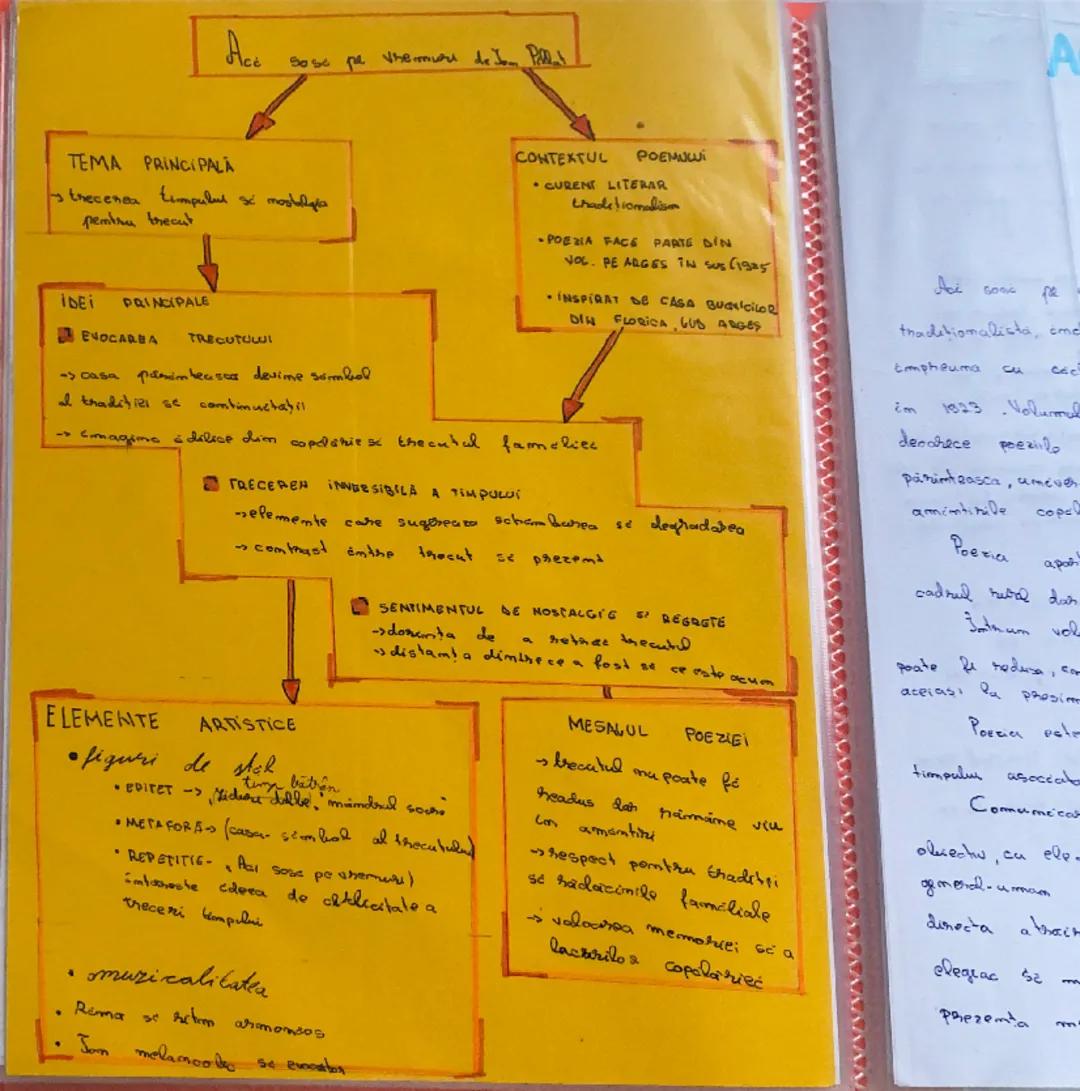 Aci sosi pe vremuri de Ion Pillat
TEMA PRINCIPALĂ
→ trecerea timpului si nostalgia
pentru trecut
CONTEXTUL POEMULUI
• CURENT LITERAR
traditionalism
• POEZIA FACE PARTE DIN
VOL. PE ARGES ÎN SUS (1925
• INSPIRAT DE CASA
DIN FLORICA, ARGES
IDEI PRINCIPALE
EVOCAREA TRECUTULUI
→ casa devine simbol
al traditiei si continuitatii
→ imagine idilice din copilarie si trecutul familiei
TRECEREA A TIMPULUI
→ elemente care sugereaza schimbarea si degradarea
→ contrast intre trecut si prezent
SENTIMENTUL DE NOSTALGIE SI REGRETE
→ dorinta de a retrai trecutul
→ distanta dintre ce a fost si ce este acum
ELEMENTE ARTISTICE
• figuri de stil
timp bătrân
• EPITET → mandrul
• METAFORĂ → (casa- simbol al trecutului)
• REPETITIE- „ Aci sosi pe vremuri)
ideea de a
treceri timpului
• muzicalitatea
• Rima si ritm armonios
• Ton melancolic si evocator
MESAJUL POEZIEI
→ trecutul nu poate fi
readus dar rămâne viu
in amintiri
→ respect pentru traditii
si rădăcinile familiale
→ valoarea memoriei si a
copilăriei
A
Aci sosi pe
traditionalistă,
impreuna cu
in 1923. Volumul
deoarece poeziile
amintirile
Poezia
cadrul rural dar
Intrun
poate fi redusa,
aceiasi la
Poezia este
timpului
obiectiv, cu ele-
general-uman
directa
elegiac si
prezenta